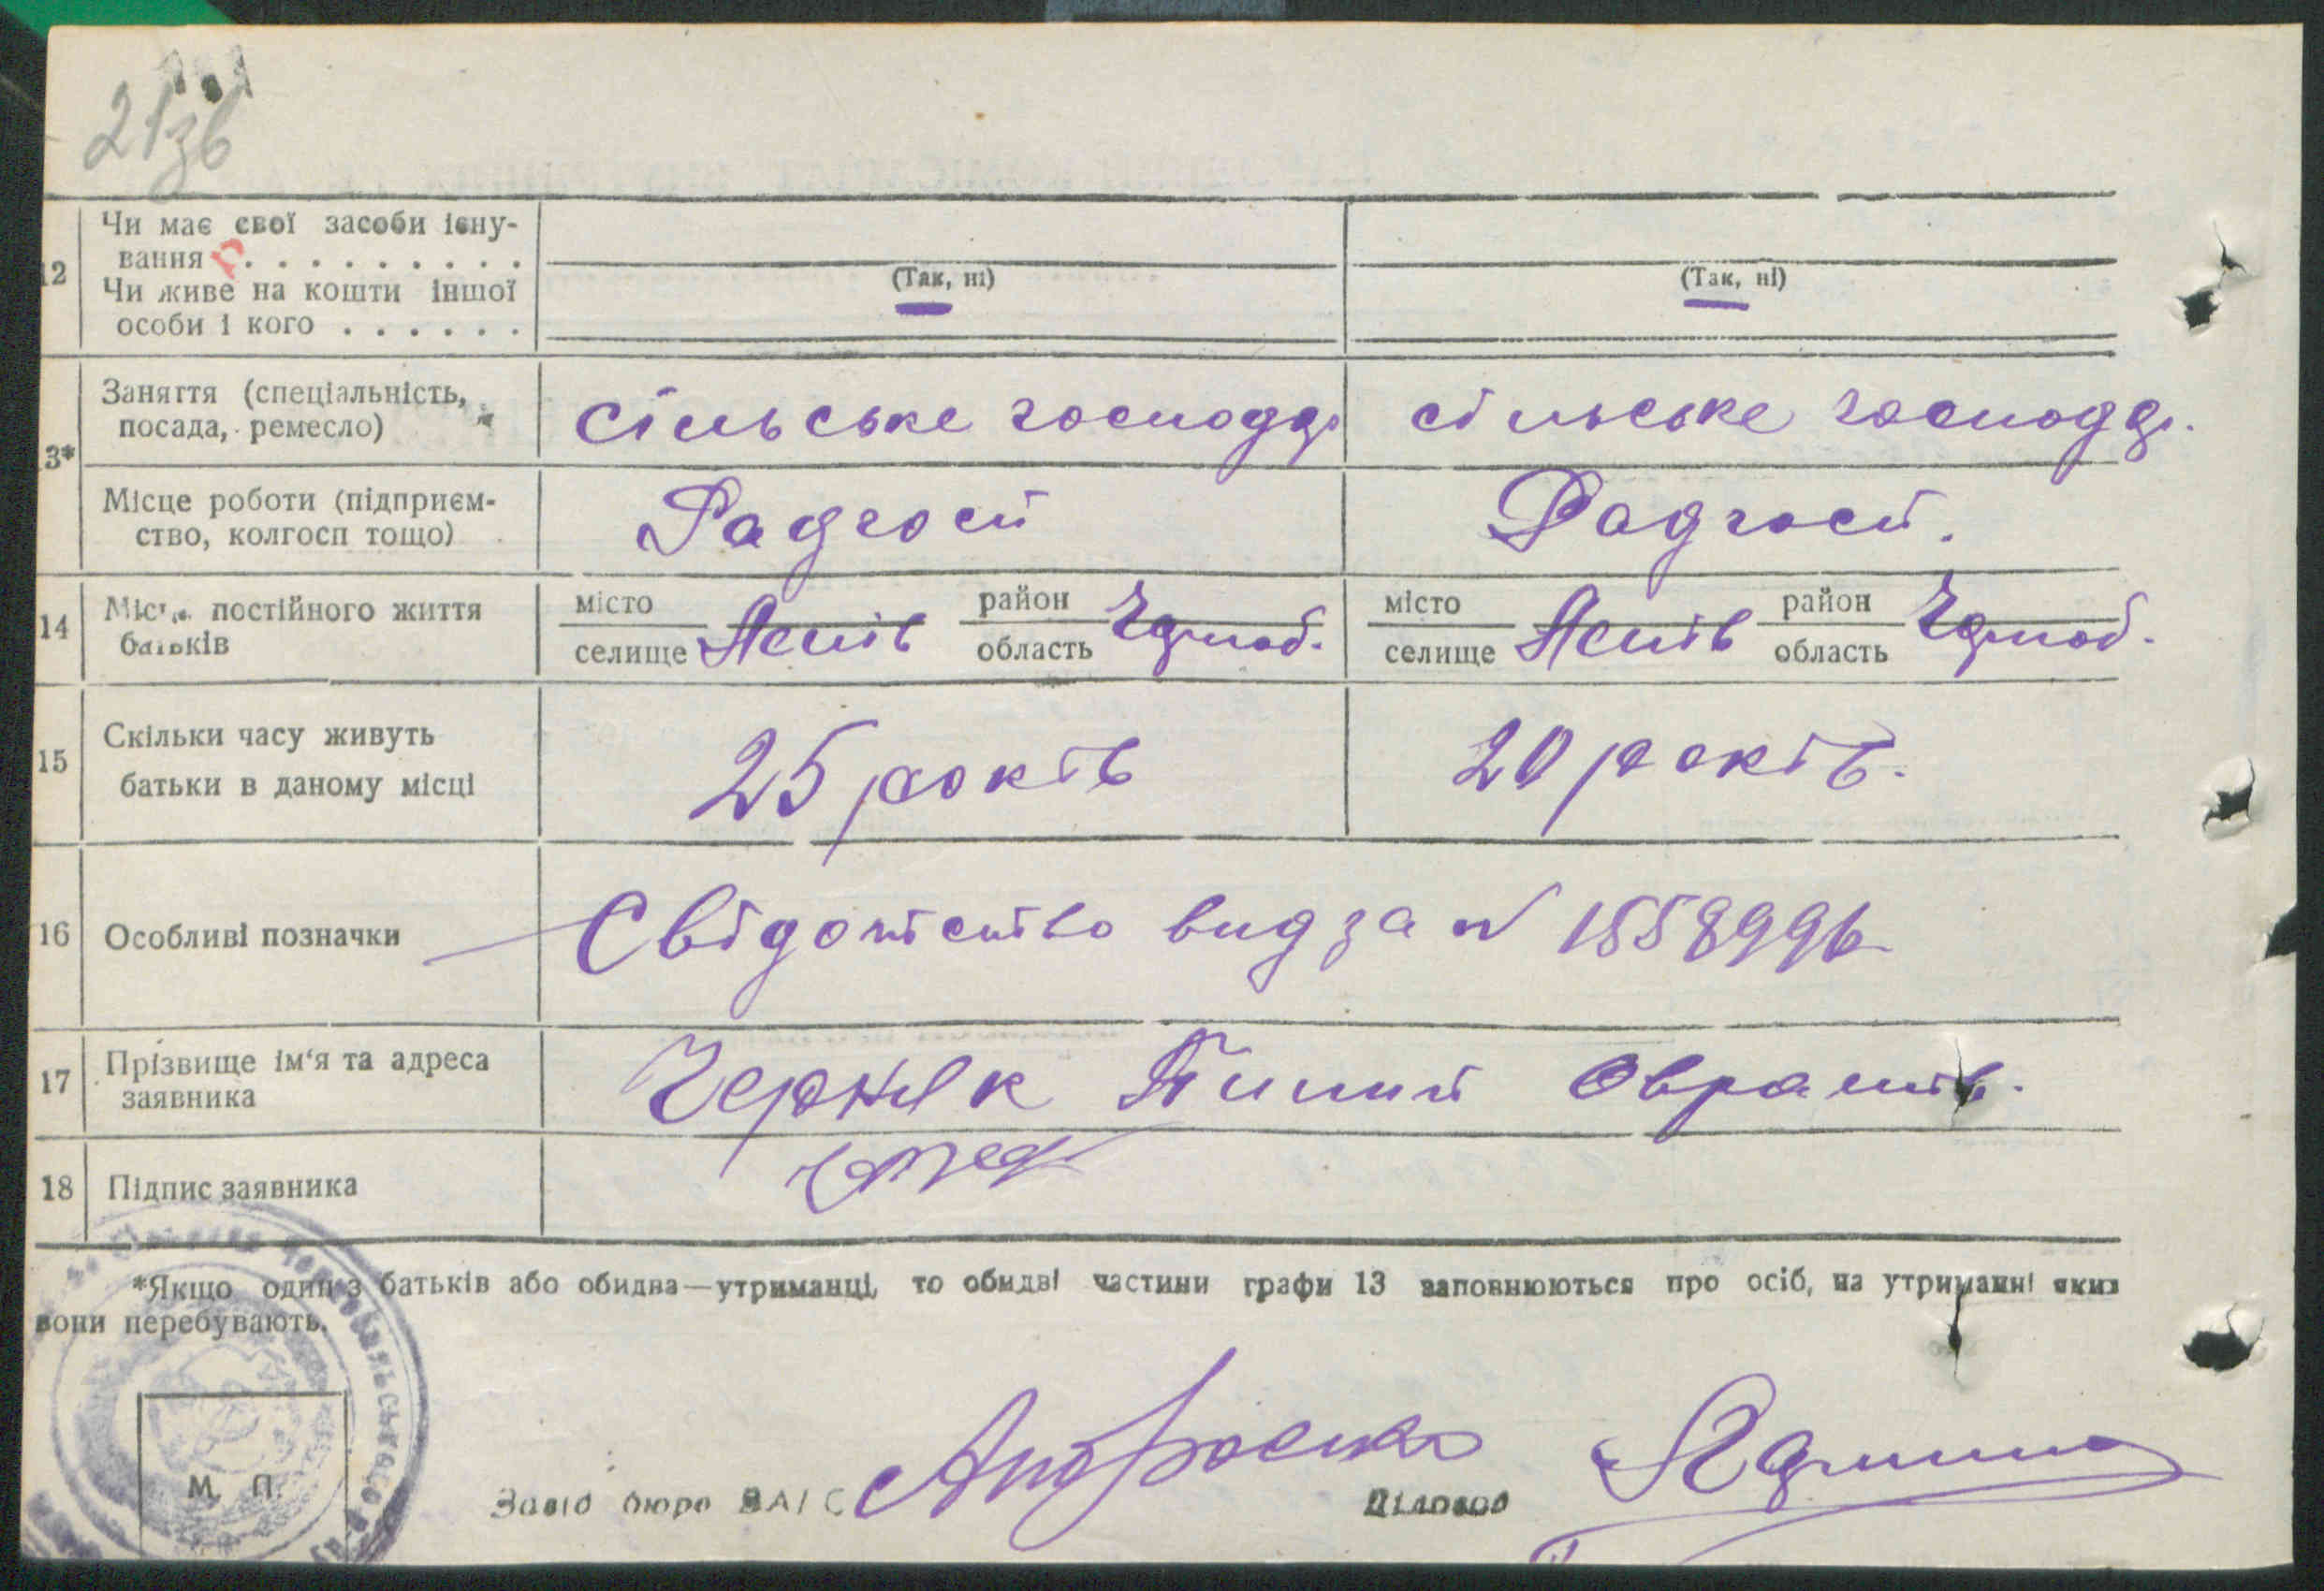 21зв
12 Чи має свої засоби існу-
вання . . . . . . . . .
(Так, ні) (Так, ні)
Чи живе на кошти іншої
особи і кого . . . . . .
13* Заняття (спеціальність,
посада, ремесло)
сільське господ сільське господ.
Місце роботи (підприєм-
ство, колгосп тощо)
Радгосп Радгосп.
14 Місце постійного життя
батьків
місто район місто район
селище область селище область
15 Скільки часу живуть
батьки в даному місці
25 років 20 років.
16 Особливі позначки Свідотство вид за № 1558996
17 Прізвище ім'я та адреса
заявника
Черняк
18 Підпис заявника
*Якщо один з батьків або обидва—утриманці, то обидві частини графи 13 заповнюються про осіб, на утриманні яких
вони перебувають.
М. П.
Завід бюро ЗАГС Діловод